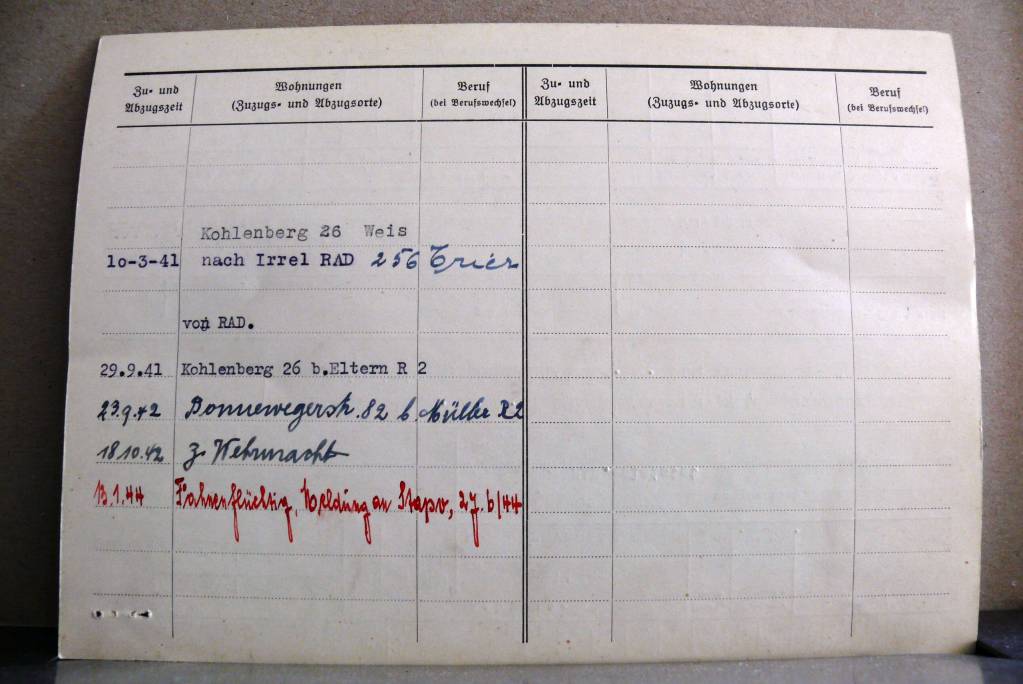 Zu- und Abzugszeit
Wohnungen
(Zuzugs- und Abzugsorte)
Beruf
(bei Berufswechsel)
Zu- und Abzugszeit
Wohnungen
(Zuzugs- und Abzugsorte)
Beruf
(bei Berufswechsel)
Kohlenberg 26 Weis
10-3-41 nach Irrel RAD 256 Trier
von RAD.
29.9.41 Kohlenberg 26 b.Eltern R 2
23.9.42 Bonnewegerstr. 82 b. Müller R2
18.10.42 z. Wehrmacht
13.1.44 Fahnenflüchtig, Meldung an Stapo, 27.6/44